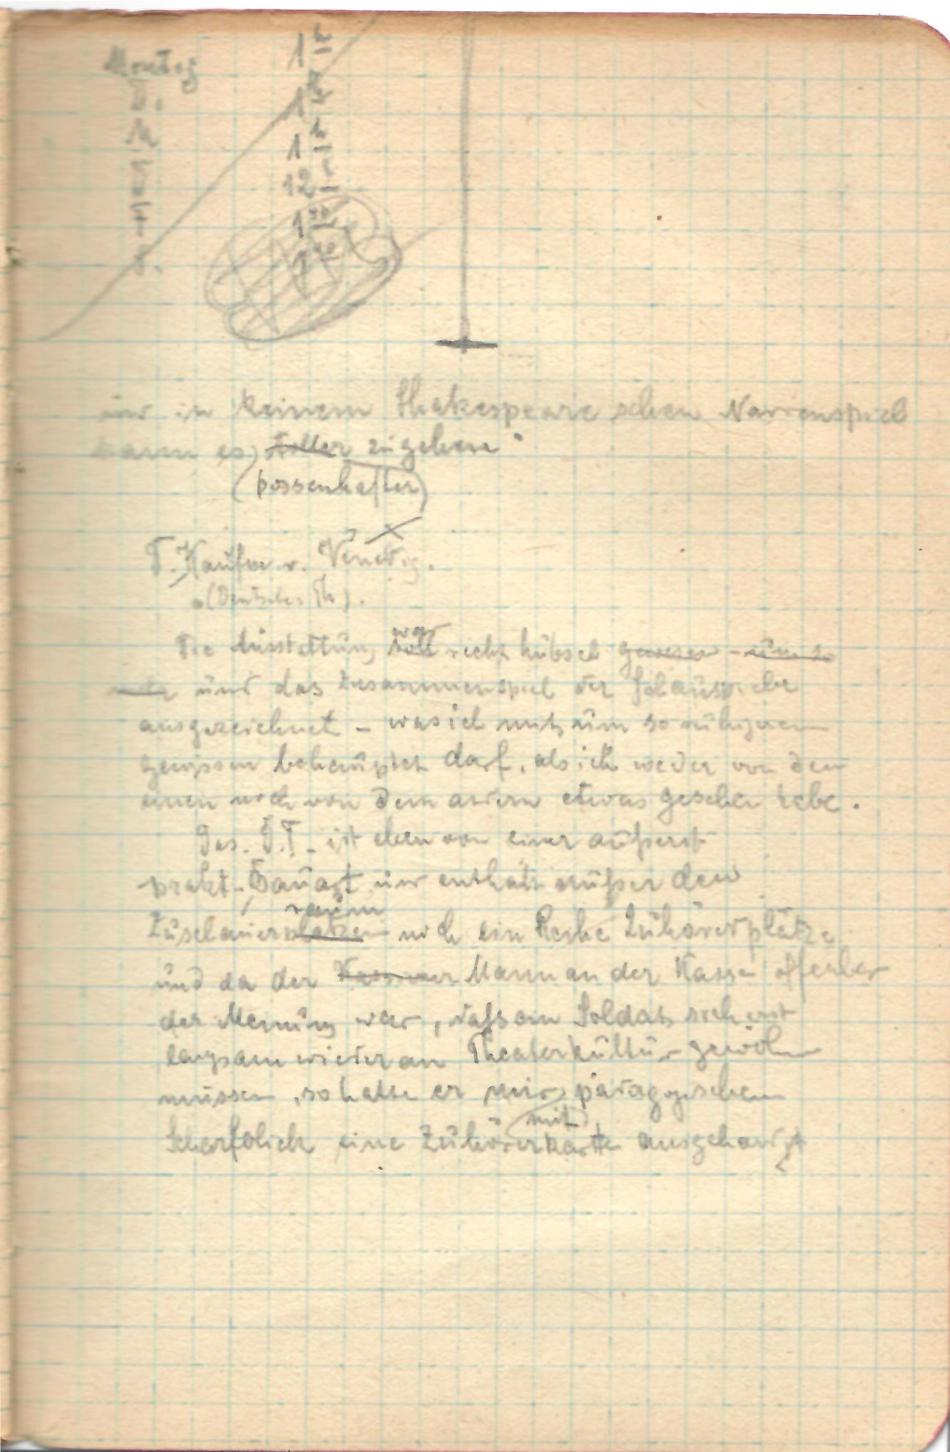 Montag
1
1
1
12
1
1
und in keinem Shakespeare'schen Narrenspiel
kann es toller zugehen"
(possenhafter)
D. Kaufm. v. Venedig.
(Deutsches Th).
war
Die Ausstattung soll recht hübsch gewesen – um so
und das Zusammenspiel der Schauspieler
ausgezeichnet – was ich mit um so ruhigerem
gewissen behaupten darf, als ich weder von dem
einen noch von dem andern etwas gesehen habe.
Das D.T. ist eben von einer äußerst
prakt. Bauart und enthält außer dem
raum
Zuschauerplätzen noch ein Reihe Zuhörerplätze
und da der Kassierer Mann an der Kasse offenbar
der Meinung war, daß ein Soldat sich erst
langsam wieder an Theaterkultur gewöhnen
müsse, so hatte er mir
mit
Scharfblick eine Zuhörerkarte ausgehändigt